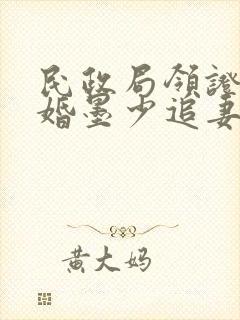 民政局領證
婚墨少追妻
黄大妈